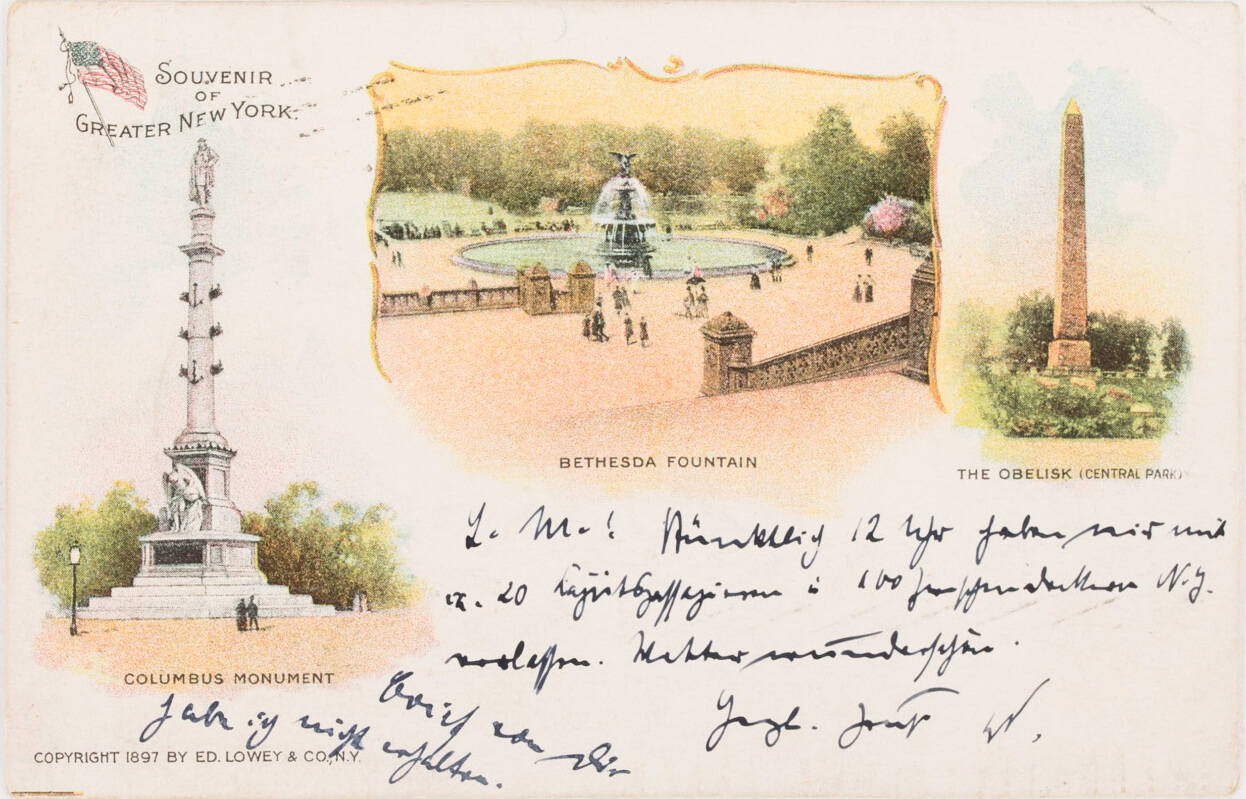 SOUVENIR
OF
GREATER NEW YORK.
BETHESDA FOUNTAIN
THE OBELISK (CENTRAL PARK)
L. M.! Pünktlich 12 Uhr haben wir mit
ca. 20 Kajütspassagieren u 100 Zwischendeckern N.Y.
verlassen. Wetter wunderschön.
Herzl. Gruß W.
COLUMBUS MONUMENT
Brief von Dir
habe ich nicht erhalten.
COPYRIGHT 1897 BY ED. LOWEY & CO., N.Y.